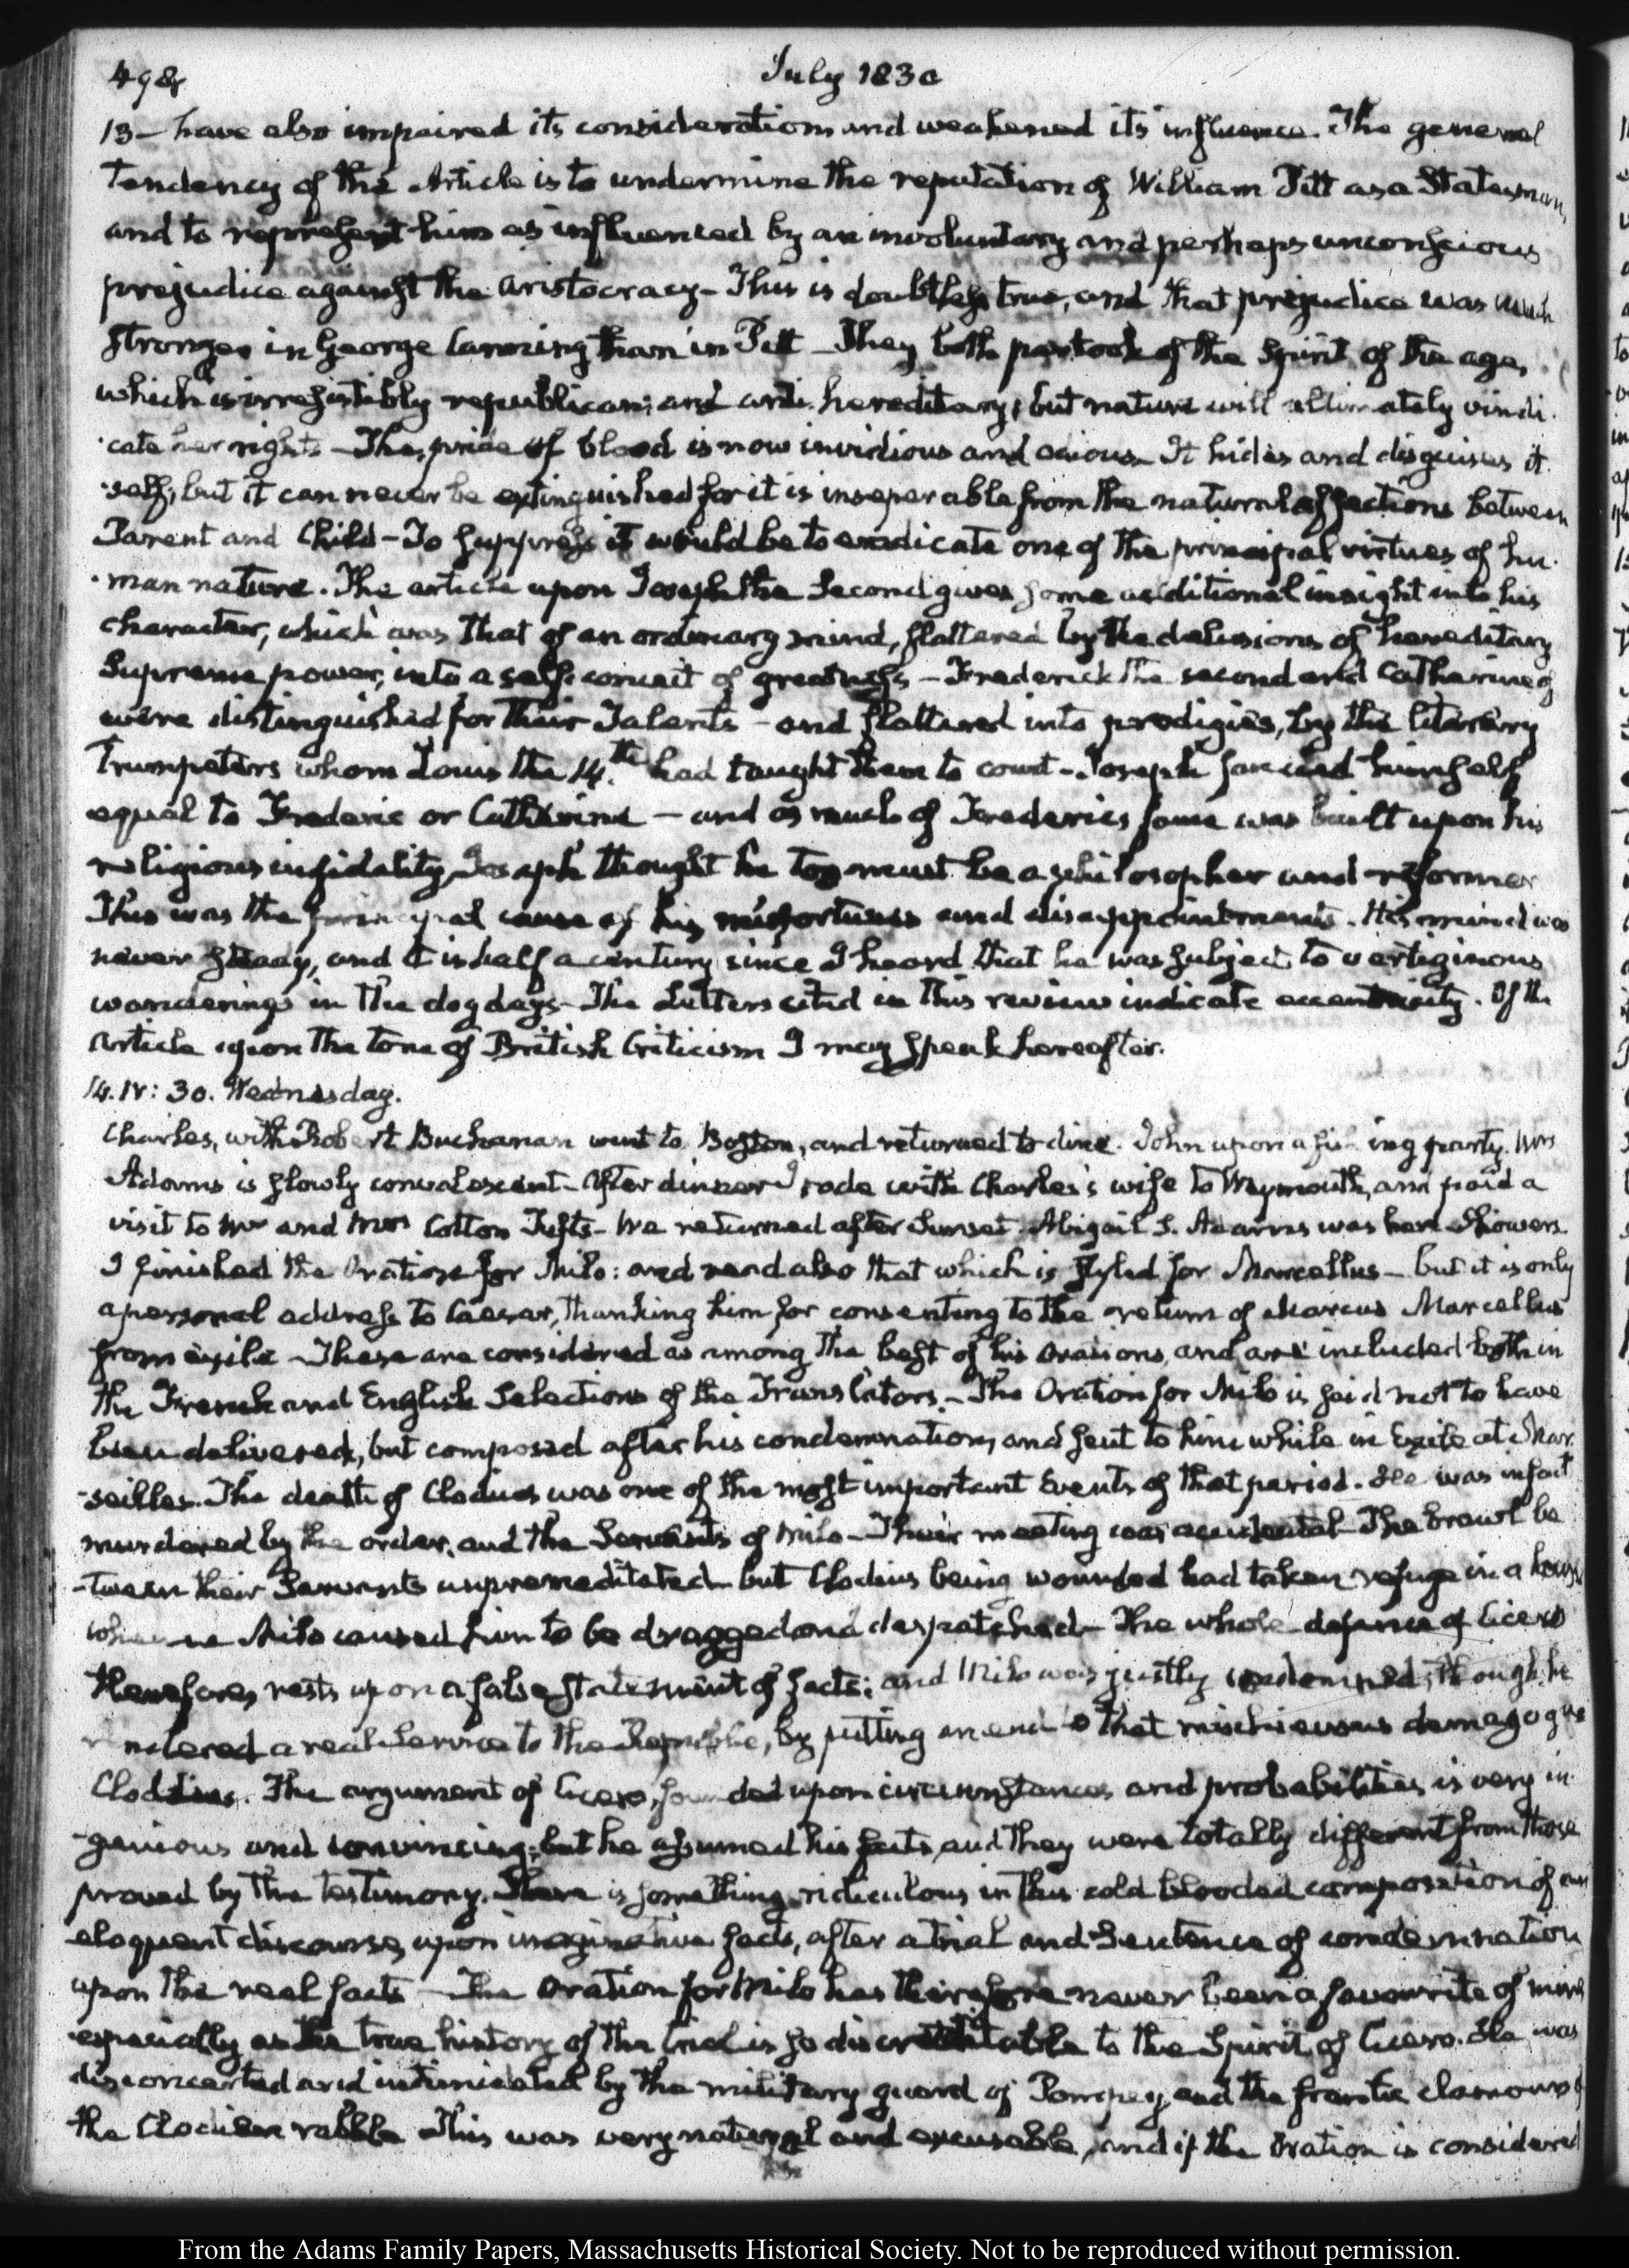 498
July 1830
13 — have also impaired its consideration and weakened its influence. The general
tendency of the Article is to undermine the reputation of William Pitt as a Statesman,
and to represent him as influenced by an involuntary and perhaps unconscious
prejudice against the aristocracy — This is doubtless true, and that prejudice was much
stronger in George Canning than in Pitt — They both partook of the Spirit of the age,
which is irresistibly republican; and anti-hereditary; but nature will ultimately vindi-
-cate her rights — The pride of blood is now invidious and odious — It hides and disguises it-
-self; but it can never be extinguished for it is inseparable from the natural affections between
Parent and Child — To suppress it would be to eradicate one of the principal virtues of hu-
-man nature. The article upon Joseph the Second gives some additional insight into his
character, which was that of an ordinary mind, flattered by the delusions of hereditary
Supreme power, into a self-conceit of greatness — Frederick the second and Catharine
were distinguished for their Talents — and flattered into prodigies, by the literary
Trumpeters whom Louis the 14th had taught them to court — Joseph fancied himself
equal to Frederic or Catharine — and as much of Frederic's fame was built upon his
religious infidelity, Joseph thought he too must be a philosopher and reformer
This was the principal cause of his misfortunes and disappointments. His mind was
never steady, and it is half a century since I heard that he was subject to vertiginous
wanderings in the dog days — The Letters cited in this review indicate eccentricity. Of the
article upon the tone of British Criticism I may speak hereafter.
14. IV: 30. Wednesday.
Charles, with Robert Buchanan went to Boston, and returned to dine. John upon a fishing party. Mrs
Adams is slowly convalescent — After dinner I rode with Charles's wife to Weymouth, and paid a
visit to Mr and Mrs Cotton Tufts — We returned after Sunset. Abigail S. Adams was here — Showers.
I finished the Oration for Milo: and read also that which is styled for Marcellus — but it is only
a personal address to Caesar, thanking him for consenting to the return of Marcus Marcellus
from exile — These are considered as among the best of his Orations, and are included both in
the French and English Selections of the Translators. — The Oration for Milo is said not to have
been delivered, but composed after his condemnation, and sent to him while in Exile at Mar-
-seilles. The death of Clodius was one of the most important Events of that period. He was in fact
murdered by the order, and the Servants of Milo — Their meeting was accidental — The brawl be-
-tween their Servants unpremeditated — but Clodius being wounded had taken refuge in a house
whence Milo caused him to be dragged and despatched — The whole defence of Cicero
therefore, rests upon a false statement of facts; and Milo was justly condemned, though he
rendered a real Service to the Republic, by putting an end to that mischievous demagogue
Clodius. The argument of Cicero, founded upon circumstances and probabilities is very in-
-genious and convincing; but he assumed his facts, and they were totally different from those
proved by the testimony. There is something ridiculous in this cold blooded composition of an
eloquent discourse, upon imaginative facts, after a trial and Sentence of condemnation
upon the real facts — The Oration for Milo has therefore never been a favourite of mine
especially as the true history of the trial is so discreditable to the Spirit of Cicero. He was
disconcerted and intimidated by the military guard of Pompey, and the frantic clamours of
the Clodian rabble — This was very natural and excusable, and if the Oration is considered
From the Adams Family Papers, Massachusetts Historical Society. Not to be reproduced without permission.